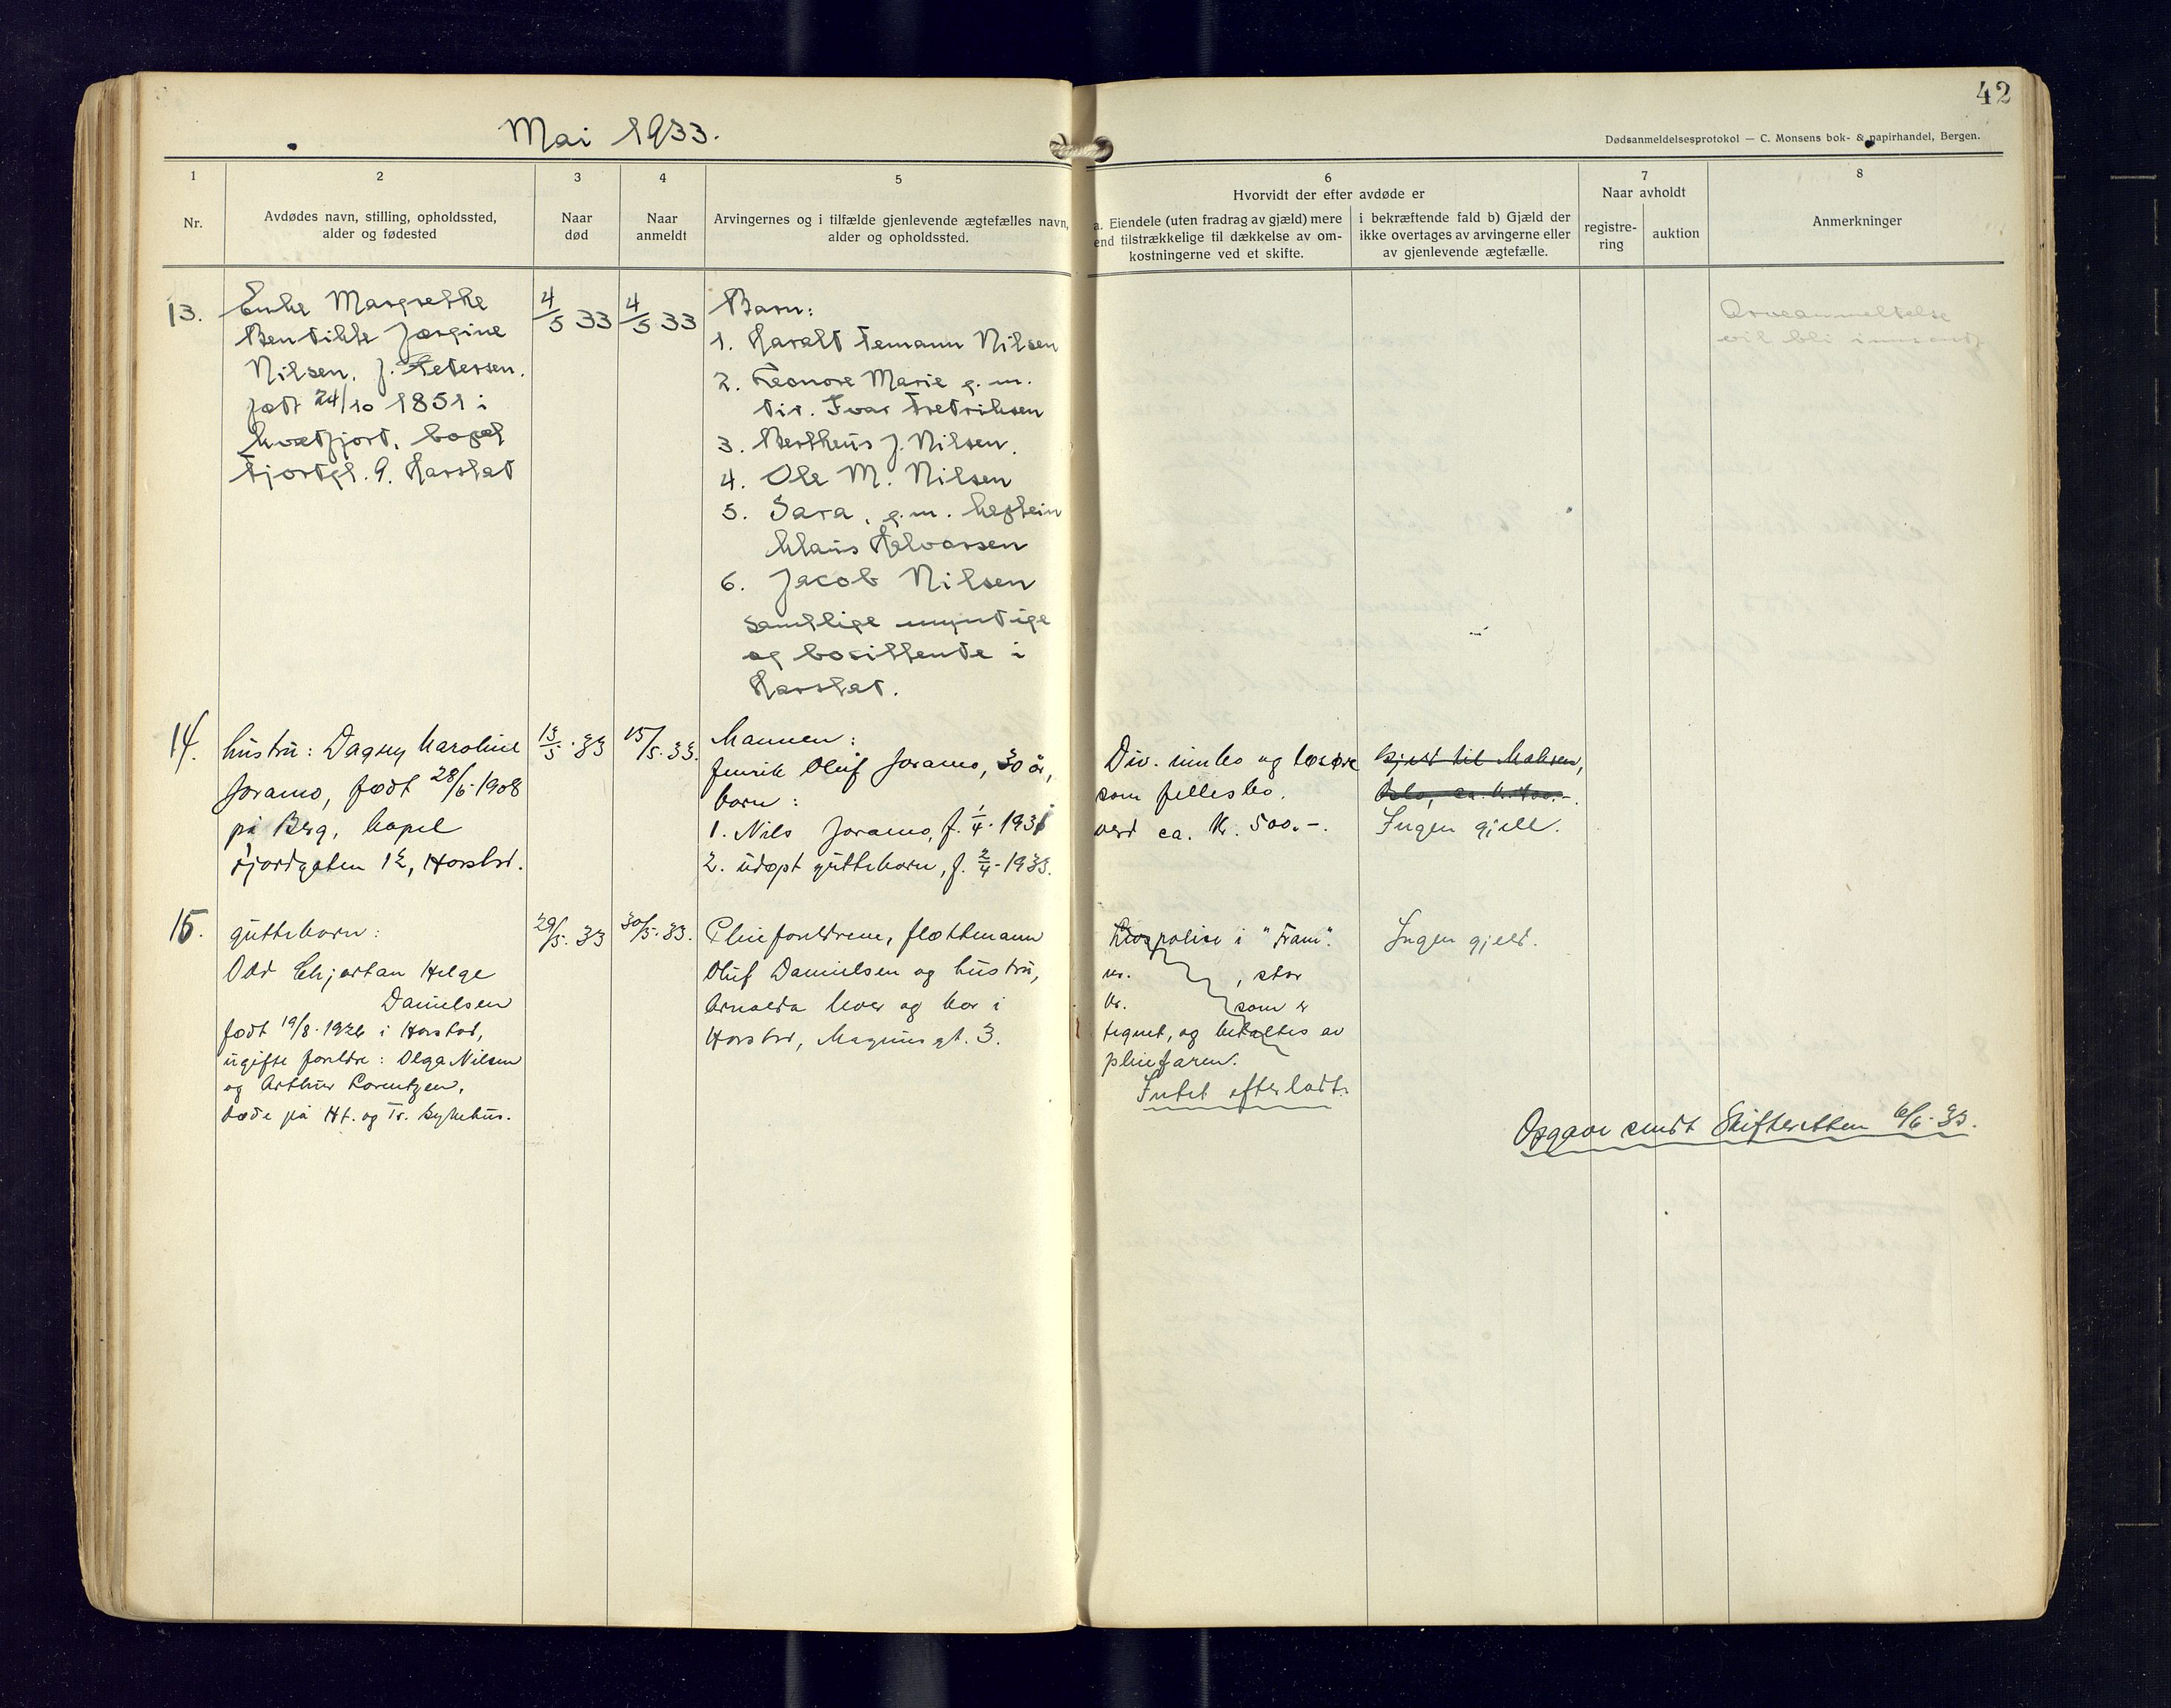 Mai 1933.
42
Dødsanmeldelsesprotokol — C. Monsens bok- & papirhandel, Bergen.
1
Nr.
2
Avdødes navn, stilling, opholdssted,
alder og fødested
3
Naar
død
4
Naar
anmeldt
5
Arvingernes og i tilfælde gjenlevende ægtefælles navn,
alder og opholdssted.
6
Hvorvidt der efter avdøde er
a. Eiendele (uten fradrag av gjæld) mere
end tilstrækkelige til dækkelse av om-
kostningerne ved et skifte.
i bekræftende fald b) Gjæld der
ikke overtages av arvingerne eller
av gjenlevende ægtefælle.
7
Naar avholdt
registre-
ring
auktion
8
Anmerkninger
13.
Enke Margrethe
Bendikke Jørgine
Nilsen, f. Petersen.
født 24/10 1851 i
Kvædfjord, bopel
Fjordgt. 9. Harstad
4/5 33
4/5 33
Barn:
1. Harald Temann Nilsen
2. Leonore Marie g. m.
dir. Ivar Fredriksen
3. Bertheus J. Nilsen.
4. Ole M. Nilsen
5. Sara, g.m. kaptein
Klaus Halvorsen
6. Jacob Nilsen
samtlige myndige
og bosittende i
Harstad.
Arveanmeldelse
vil bli innsendt
14.
hustru: Dagny Karoline
Joramo, født 28/6-1908
på Berg, bopel
Fjordgaten 12, Harstad.
13/5-33
15/5-33.
Mannen:
Henrik Oluf Joramo, 30 år,
barn:
1. Nils Joramo, f. 1/4-1931
2. udøpt guttebarn, f. 2/4-1933.
Div. innbo og løsøre
som fellesbo.
verd ca. kr. 500.-.
Ingen gjell.
15.
guttebarn:
Odd Kjartan Helge
Danielsen
født 19/8-1926 i Harstad,
ugifte foreldre: Olga Nilsen
og Arthur Lorentzen,
døde på Ht. og Tr. Sykehus.
29/5-33
30/5-33.
Pleieforeldrene, fløttmann
Oluf Danielsen og hustru,
Arnolda lever og bor i
Harstad, Magnusgt. 3.
Livspolise i "Fram".
nr. , stor
kr. som er
tegnet, og betaltes av
pleiefaren.
Intet efterladt.
Ingen gjeld.
Opgave sendt Skifteretten 6/6-33.